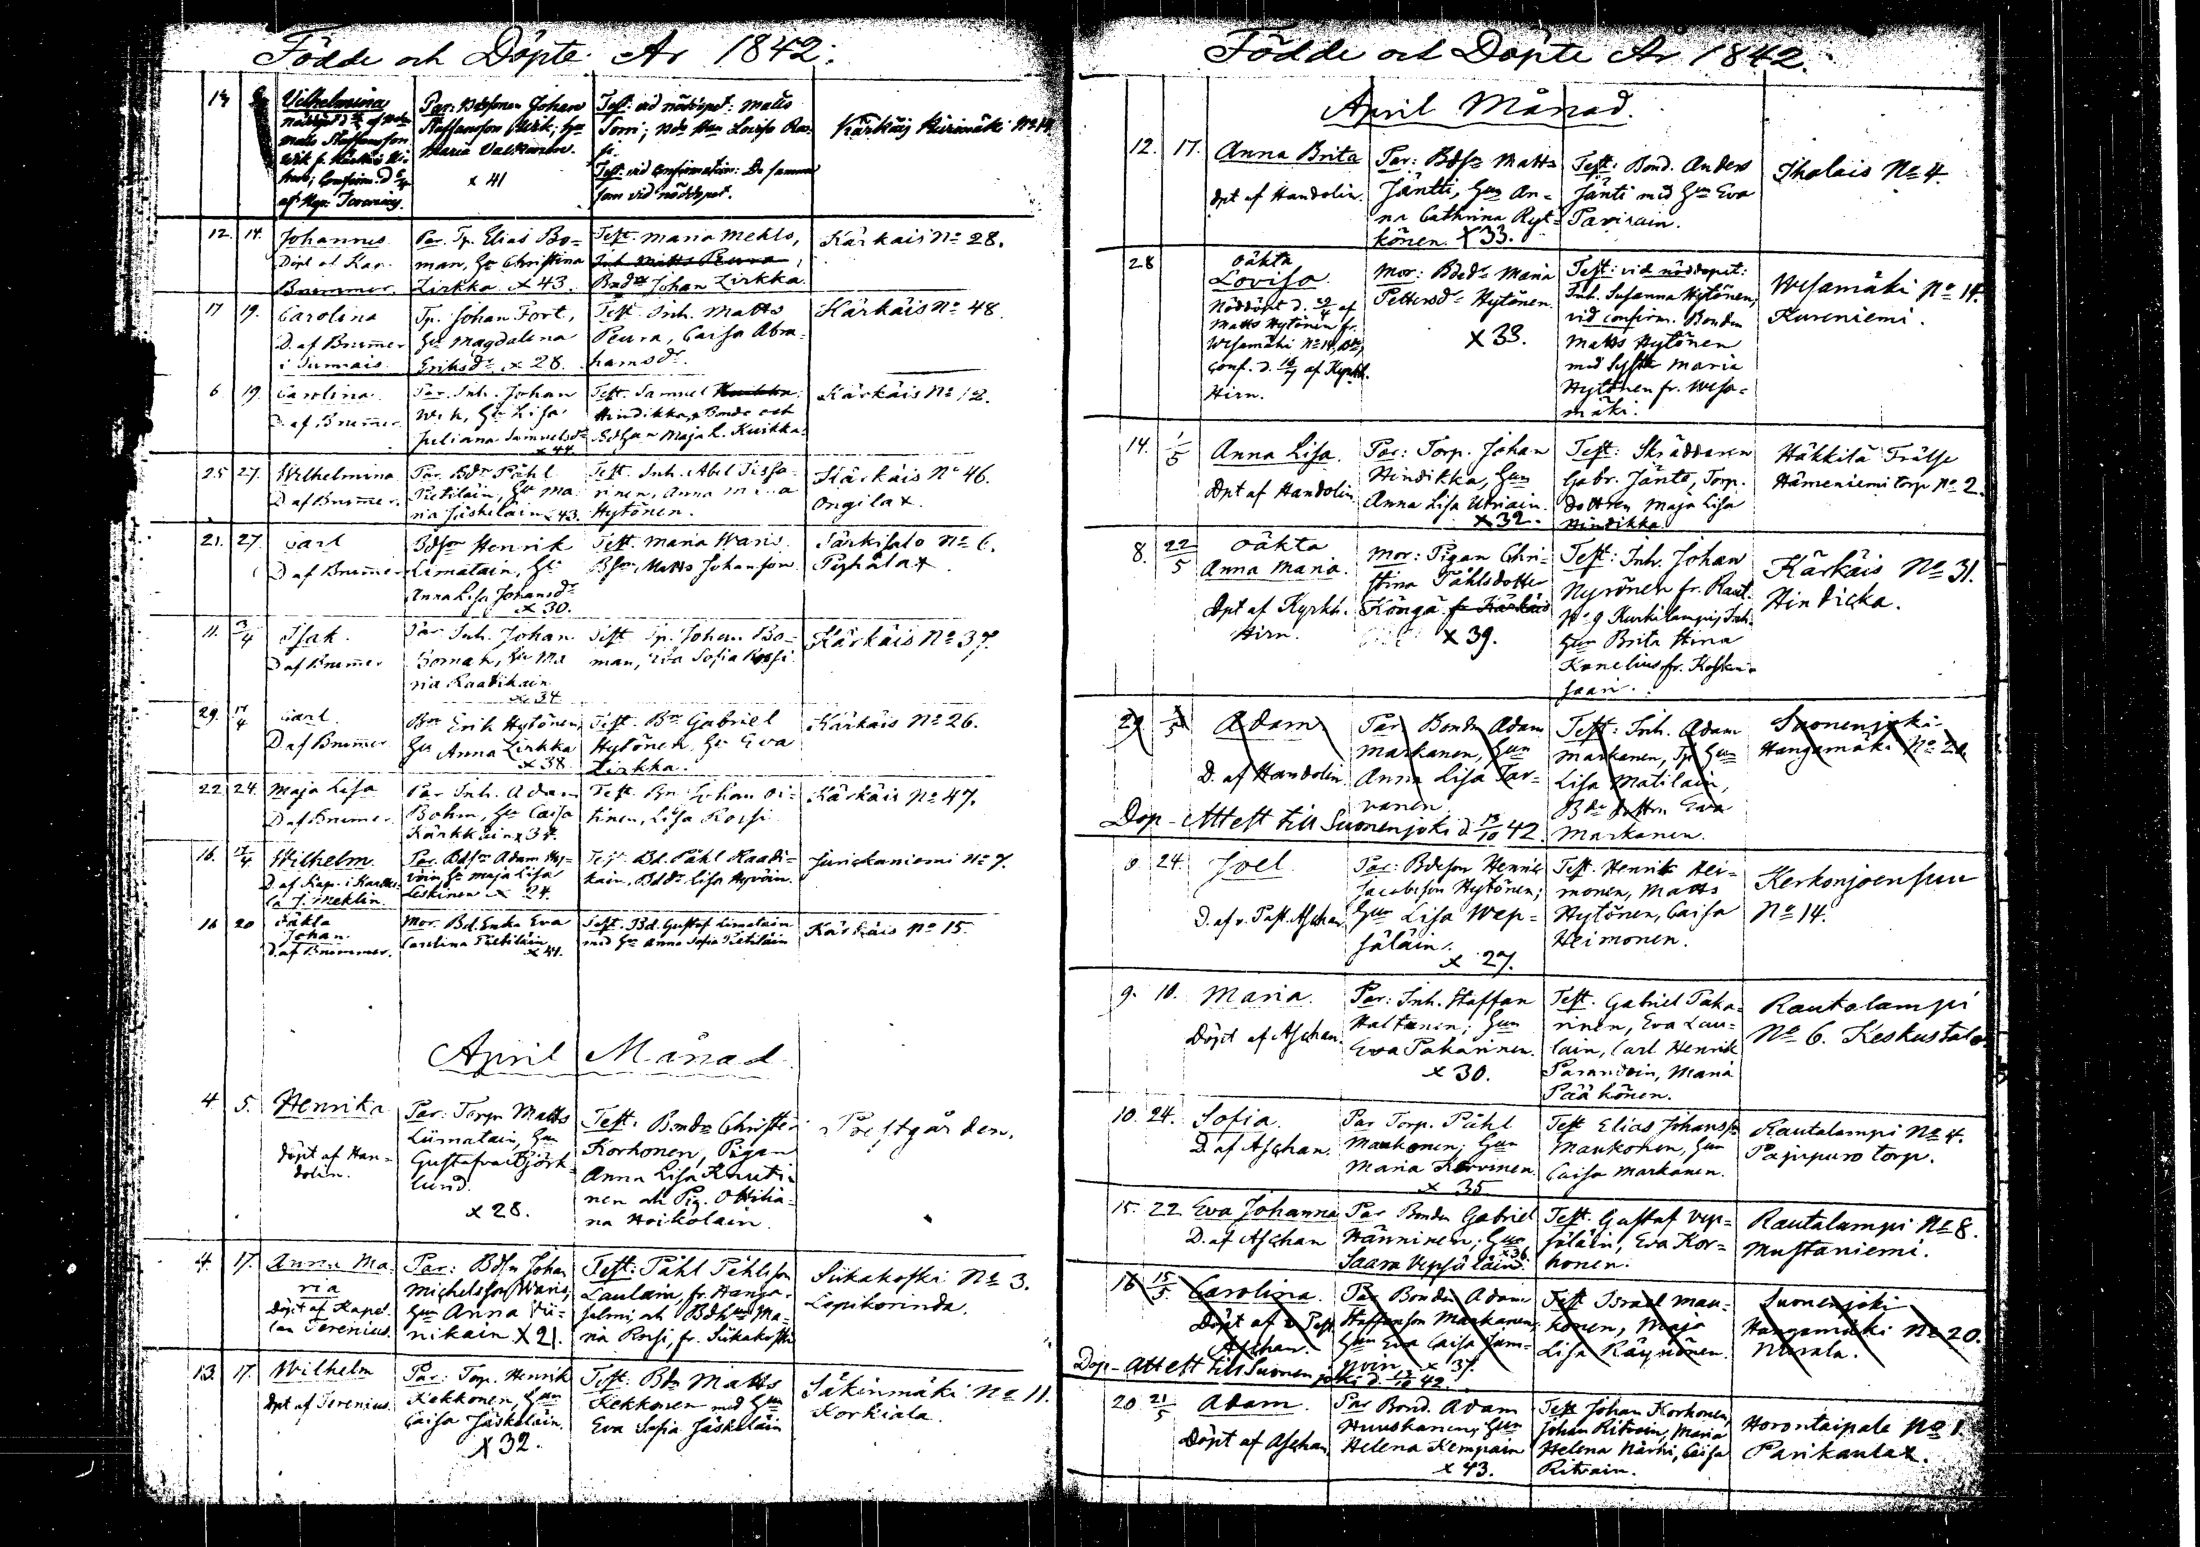 Födde och Döpte År 1842.
Vilhelmina
Par: Bdssonen Johan
Staffansson Wik, Hu
Maria Valkonen.
x 41
Test: vid nöddopet: Matts
Test: vid Confirmation: De samma
som vid nöddopet.
Kärkäis Niirimäki No 14
12. 14. Johannes
Döpt af Kap.
Brummer.
Par. Tp. Elias Bo-
man, Hu Christina
Zirkka x 43.
Test. Maria Mehlo,
Inh. Matts Peura,
Johan Zirkka
Kärkäis No 28.
17 19. Carolina
D. af Brummer
i Sumiais.
Tp. Johan Fort,
Hu Magdalena
Eriksdr x 28.
Test. Inh. Matts
Peura, Caisa Abra-
hamsdr.
Kärkäis No 48.
6 19 Carolina.
D. af Brummer.
Par. Inh. Johan
Wik, Hu Lisa
Juliana Samuelsdr
x 44
Test. Samuel
Hindikka, Bonde och
Maja L. Kuikka
Kärkäis No 12.
25 27. Wilhelmina
D af Brummer.
Par. Bdr Påhl
Pietiläin, Hu Ma-
ria Jäskeläin x 43.
Test. Inh. Abel Tissa-
rinen, Anna
Hytönen.
Kärkäis No 46.
Ongila x.
21. 27. Carl
D af Brummer
Bdsr Henrik
Limatain, Hu
Anna Lisa Johansdr
x 30.
Test. Maria Waris
Matts Johansson.
Tärkisalo No 6.
Pighäla x
11. 3/4 Isak.
D af Brummer
Par Inh. Johan
Boman, Hu Ma
ria Raatikain
x 34
Test Tp. Johan Bo-
man, Eva Sofia Rossi
Kärkäis No 37.
29. 17/4 Carl.
D af Brummer
Bn Erik Hytönen,
Hu Anna Zirkka
x 38
Test. Bn Gabriel
Hytönen, Hu Eva
Zirkka.
Kärkäis No 26.
22 24. Maja Lisa
D af Brummer
Par Inh. Adam
Bohm, Hu Caisa
Kärkkäin x 37.
Test. Bn Johan Oi-
tinen, Lisa Rossi
Kärkäis No 47.
16. 17/4 Wilhelm.
Par. Bdsn Adam Hy-
vöin Hu Maja Lisa
Leskinen x 24.
Test. Bd. Påhl Raadi-
kain, Bddr Lisa Hyvöin.
No 7.
16 20 Oäkta
Johan.
D. af Brummer.
Mor. Bd. Enka Eva
Carolina Pietiläin
x 41.
Test. Bd. Gustaf Limatain
med Hu Anna Sofia Pietiläin
Kärkäis No 15.
April Månad.
4 5. Henrika
döpt af Han-
dolin.
Par: Torpr Matts
Liimatain, Hu
Gustafva Björk-
lund.
x 28.
Test. Bonden Christer
Korhonen, Pigan
Anna Lisa Knuti-
nen och Pig. Ottilia-
na Hoikolain.
Prestgården.
4. 17. Anna Ma-
ria
Döpt af Kapel-
lan Terenius.
Par: Bdsn Johan
Michelsson Waris,
Hun Anna Pii-
nikain x 21.
Test: Påhl Påhlsson
Laulain, fr. Hanga-
salmi och Bdhun Ma-
ria Rossi, fr. Siikakoski
Siikakoski No 3.
Lopikorinda.
13. 17. Wilhelm
dpt af Terenius.
Par: Torp. Henrik
Kekkonen, Hun
Caisa Jäskeläin.
x 32.
Test. Bdn Matts
Kekkonen med Hun
Eva Sofia Jäskeläin
Säkinmäki No 11.
Korkiala.
Födde och Döpte År 1842.
April Månad.
12. 17. Anna Brita
dpt af Handolin.
Par: Bdsn Matts
Jäntti, Hun An-
na Cathrina Ryt-
könen. x 33.
Test: Bond. Anders
Jänti med Hun Eva
Parisain.
Ihalais No 4.
28 oäkta
Lovisa
Nöddöpt d. 29/4 af
Matts Hytönen fr.
Wesamäki No 14,
Conf. d. 16/7 af Kyrkh.
Hirn.
Mor: Bdedr Maria
Pettersdr Hytönen.
x 38.
Test: vid nöddopet:
Inh. Susanna Hytönen,
vid confirm. Bonden
Matts Hytönen
med Syster Maria
Hytönen fr. Wesa-
mäki.
Wesamäki No 14.
Kureniemi.
14. 1/5 Anna Lisa.
dpt af Handolin.
Par: Torp. Johan
Hindikka, Hun
Anna Lisa Utriain.
x 32.
Test: Skräddaren
Gabr. Jänte, Torp.
dottren Maja Lisa
Hindikka
Häkkilä Frälse
Hämeniemi torp No 2.
8. 22/5 oäkta
Anna Maria.
Dpt af Kyrkh.
Hirn.
Mor: Pigan Chri-
stina Påhlsdotter
Köngä fr Kärkäis
x 39.
Test: Inh. Johan
Nyrönen fr. Raut.
No 9 Kurkilampi, Inh.
Hun Brita Stina
Konelius fr. Kosken-
saari.
Kärkäis No 31.
Hindicka.
29 Adam
D. af Handolin.
Par Bonden Adam
Markanen, Hun
Anna Lisa Tar-
vanen
Test: Inh. Adam
Markanen, Tp. Hun
Lisa Matilain,
Bde dottren Eva
Markanen.
Suonenjoki
Hangamäki No 20
Dop-Attest till Suonenjoki d. 13/10 42.
9 24. Joel
D. af v. Past. Aschan
Par: Bdeson Henrik
Jacobsson Hytönen;
Hun Lisa Wep-
säläin.
x 27.
Test. Henrik Hei-
monen, Matts
Hytönen, Caisa
Heimonen.
Kerkonjoensuu
No 14.
9. 10. Maria.
Döpt af Aschan.
Par: Inh. Staffan
Haltunen, Hun
Eva Pakarinen.
x 30.
Test. Gabriel Paka-
rinen, Eva Lau-
lain, Carl Henrik
Parandain, Maria
Pääkönen.
Rautalampi
No 6. Keskustalo
10. 24. Sofia.
D. af Aschan.
Par Torp. Påhl
Maukonen; Hun
Maria Korvinen
x 35
Test Elias Johansson
Maukonen, Hun
Caisa Markanen.
Rautalampi No 4.
Pajupuro torp.
15. 22 Eva Johanna
D. af Aschan
Par Bonden Gabriel
Hänninen; Hun
x 36
Saara Vepsäläin.
Test. Gustaf Vep-
säläin, Eva Kor-
honen.
Rautalampi No 8.
Mustaniemi.
18 15/5 Carolina.
Döpt af v Past
Aschan.
Par Bonden Adam
Staffansson Markanen,
Hun Eva Caisa Jam-
x 37.
Test Israel Mau-
konen, Maja
Lisa Räynönen.
Suonenjoki
Hangamäki No 20.
Niirala.
Dop-Attest till Suonenjoki d. 13/10 42.
20 21/5 Adam.
Döpt af Aschan
Par Bond. Adam
Huuskanen, Hun
Helena Kempain
x 43.
Test Johan Korhonen,
Johan Ritvain, Maria
Helena Närhi, Caisa
Ritvain.
Horontaipale No 1.
Parikaula x.